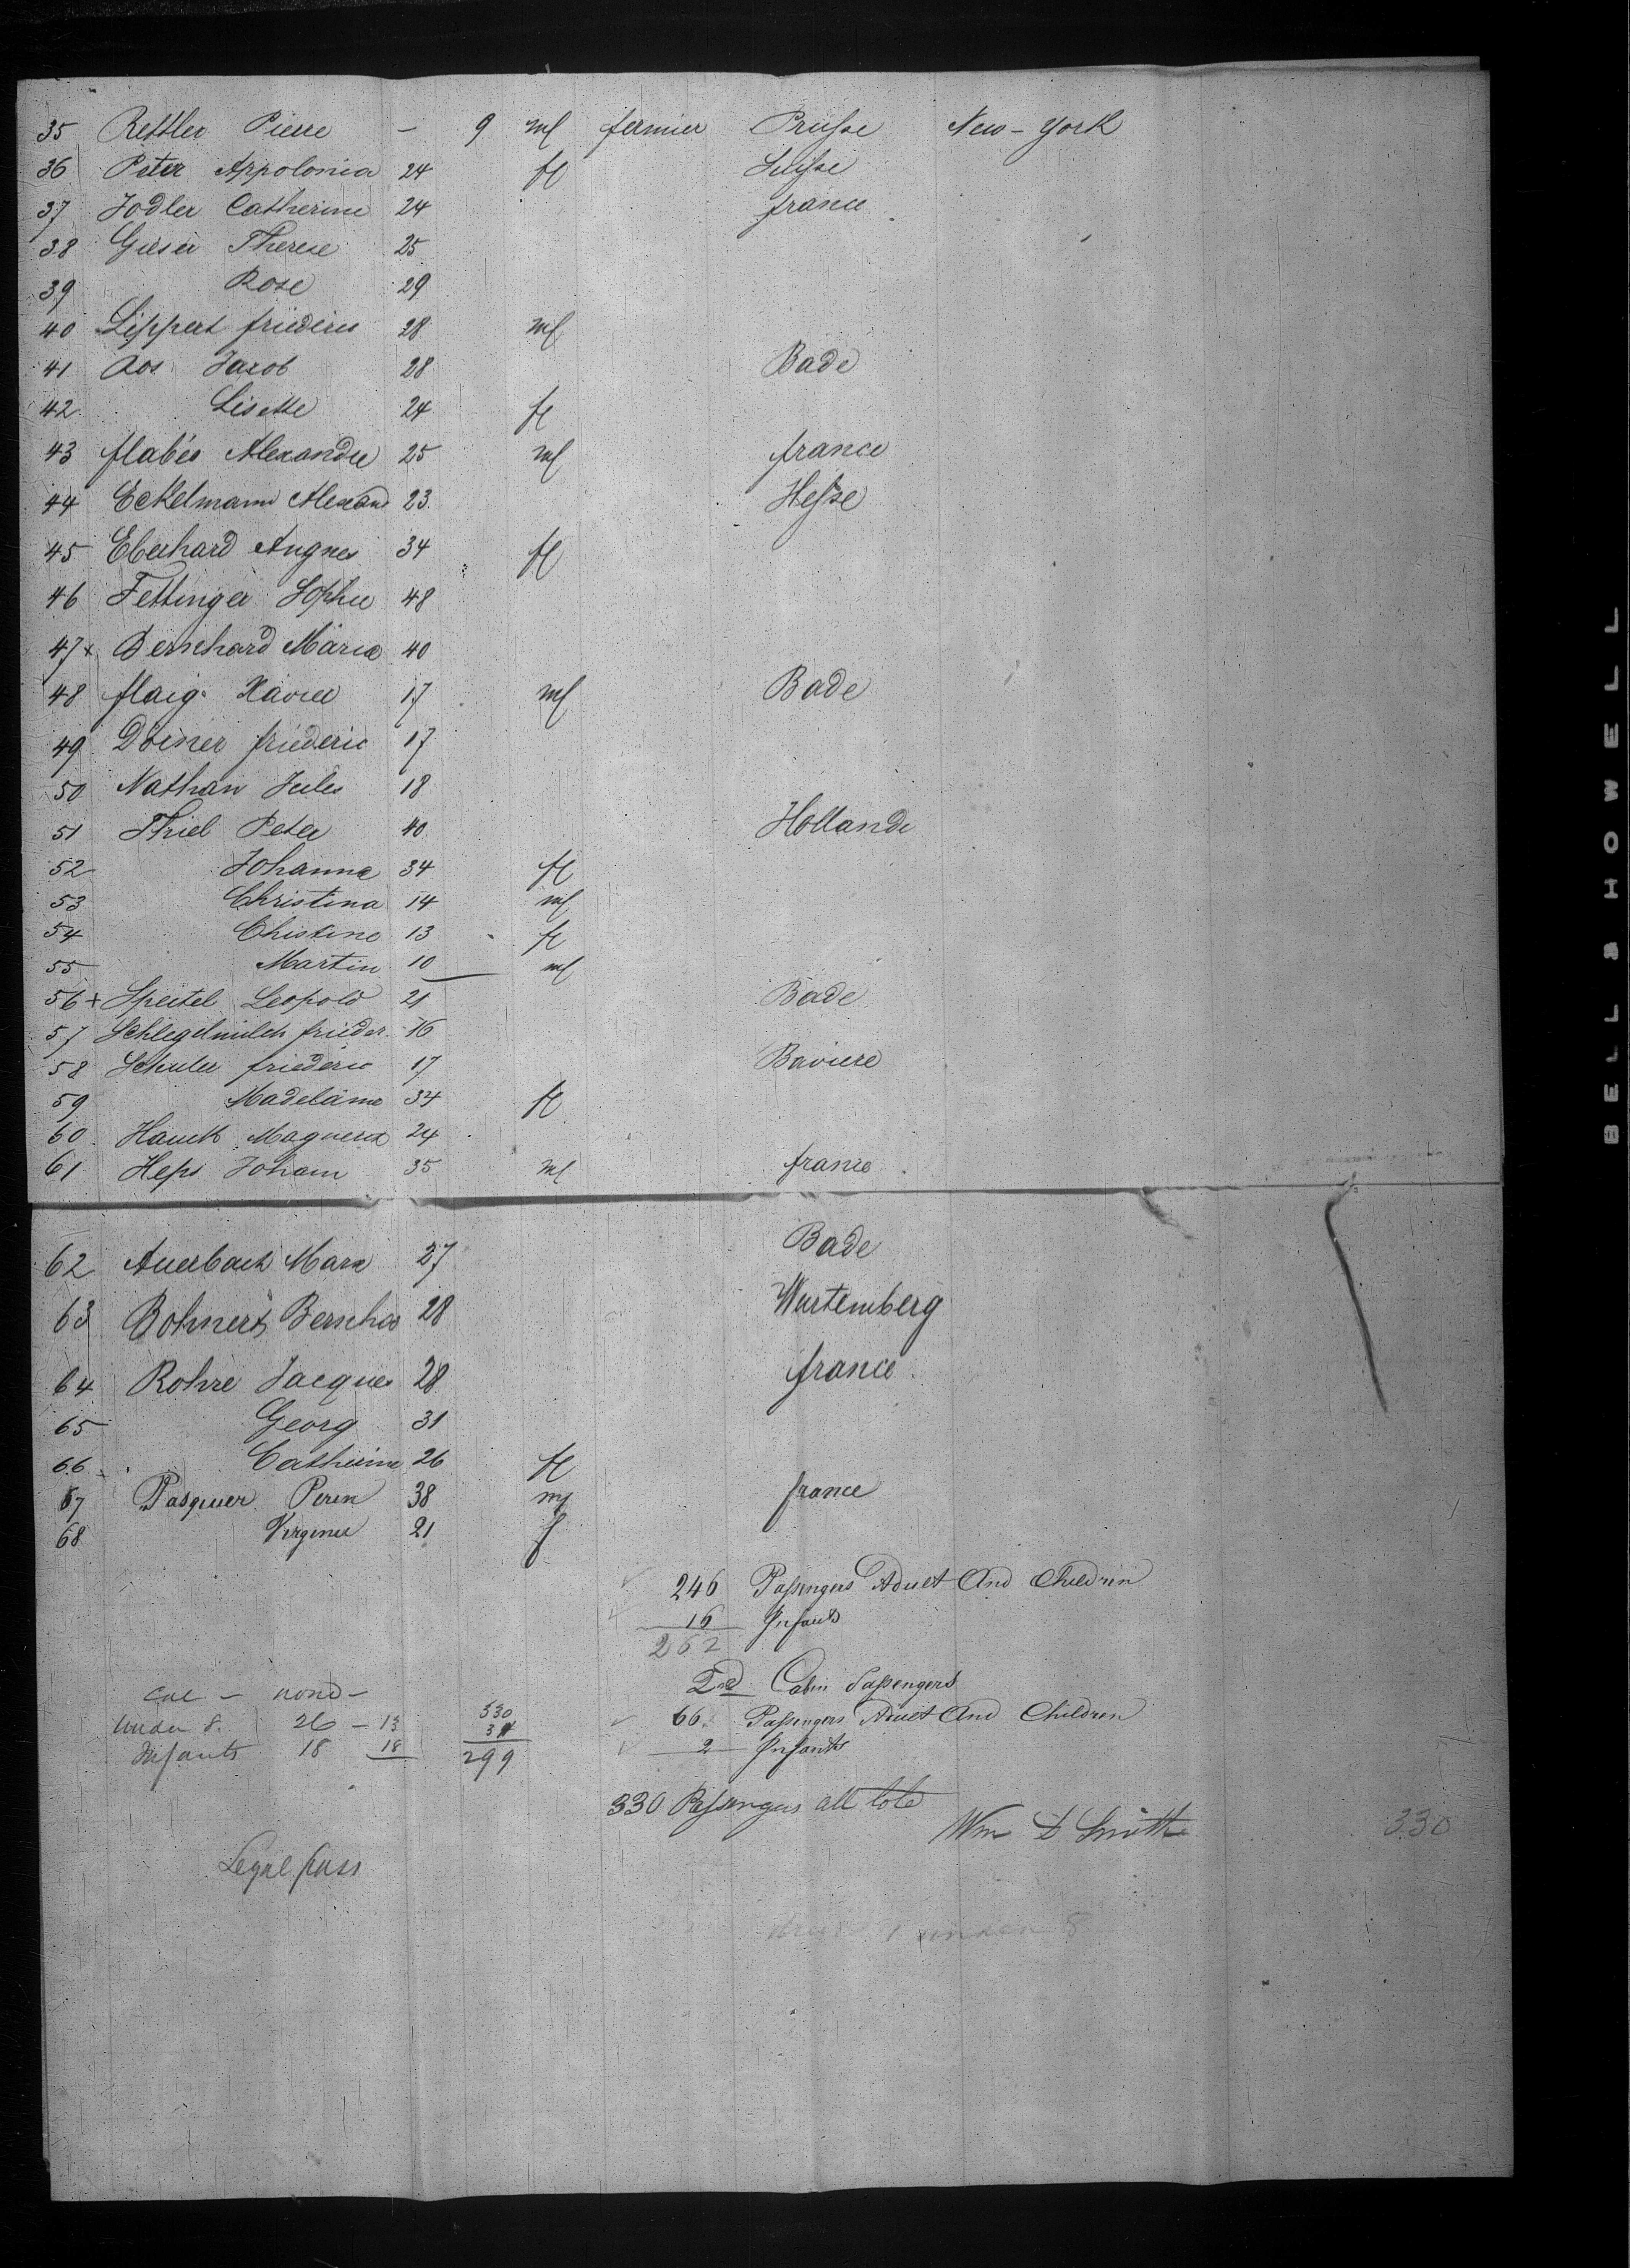 35 Rettler Pierre - 9 ml fermier Prusse New-York
36 Peter Appolonia 24 fl Suisse
37 Jodler Catherine 24 france
38 Gieser Therese 25
39 Rose 29
40 Lippert friederic 28 ml
41 Aos Jacob 28 Bade
42 Lisette 24 fl
43 Alexandre 25 ml france
44 Eckelmann Alexand 23 Hesse
45 Eberhard Angnes 34 fl
46 Fettinger Sophie 48
47 x Bernhard Maria 40
48 Xavier 17 ml Bade
49 friederic 17
50 Nathan Jules 18
51 Thiel Peter 40 Hollande
52 Johanna 34 fl
53 Christina 14 ml
54 Chistine 13 fl
55 Martin 10 ml
56 + Speitel Leopold 21 Bade
57 Schlegelmilch frieder. 16
58 Schuler friederic 17 Baviere
59 34 fl
60 Hauck 24
61 Heps Joham 35 ml france
62 Auerbach Marx 27 Bade
63 Bohnert 28 Wurtemberg
64 Rohre Jacques 28 france
65 Georg 31
66 Catherine 26 fl
67 Pasquier Peren 38 ml france
68 Virginie 21 f
246 Passengers Adult And Children
16 Infants
262
2nd Cabin Passengers
330
under 8. 26 - 13 31 66 Passengers Adult And Children
Infants 18 18 299 2 Infants
330 Passengers all told
Wm D Smith 330
Legal pass
under 8